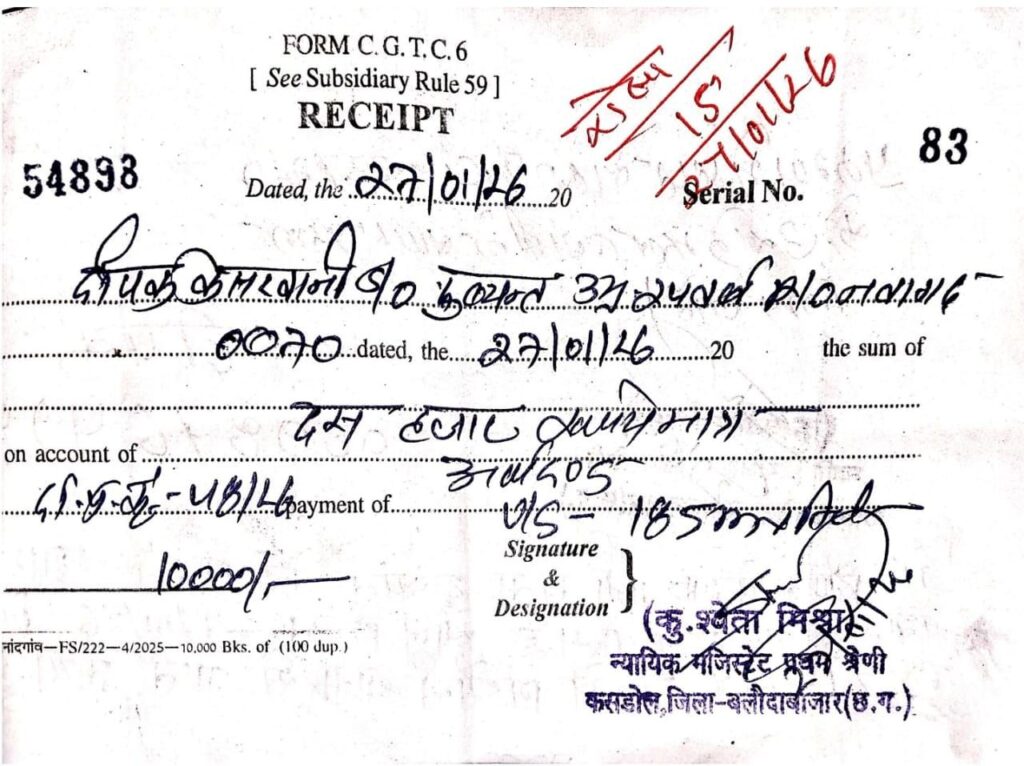 FORM C.G.T.C. 6
[ See Subsidiary Rule 59 ]
RECEIPT
15
27/01/26
83
54893
Dated, the 27/01/26 20
Serial No.
दीपक कुमार S/O उम्र 25 वर्ष
0070 dated, the 27/01/26 20 the sum of
दस हजार रूपये मात्र
on account of
अर्थदण्ड
payment of
U/S - 185
Signature
&
Designation
10000/-
(कु.श्वेता मिश्रा)
न्यायिक मजिस्ट्रेट प्रथम श्रेणी
कसडोल,जिला-बलौदाबाजार(छ.ग.)
नांदगांव—FS/222—4/2025—10,000 Bks. of (100 dup.)